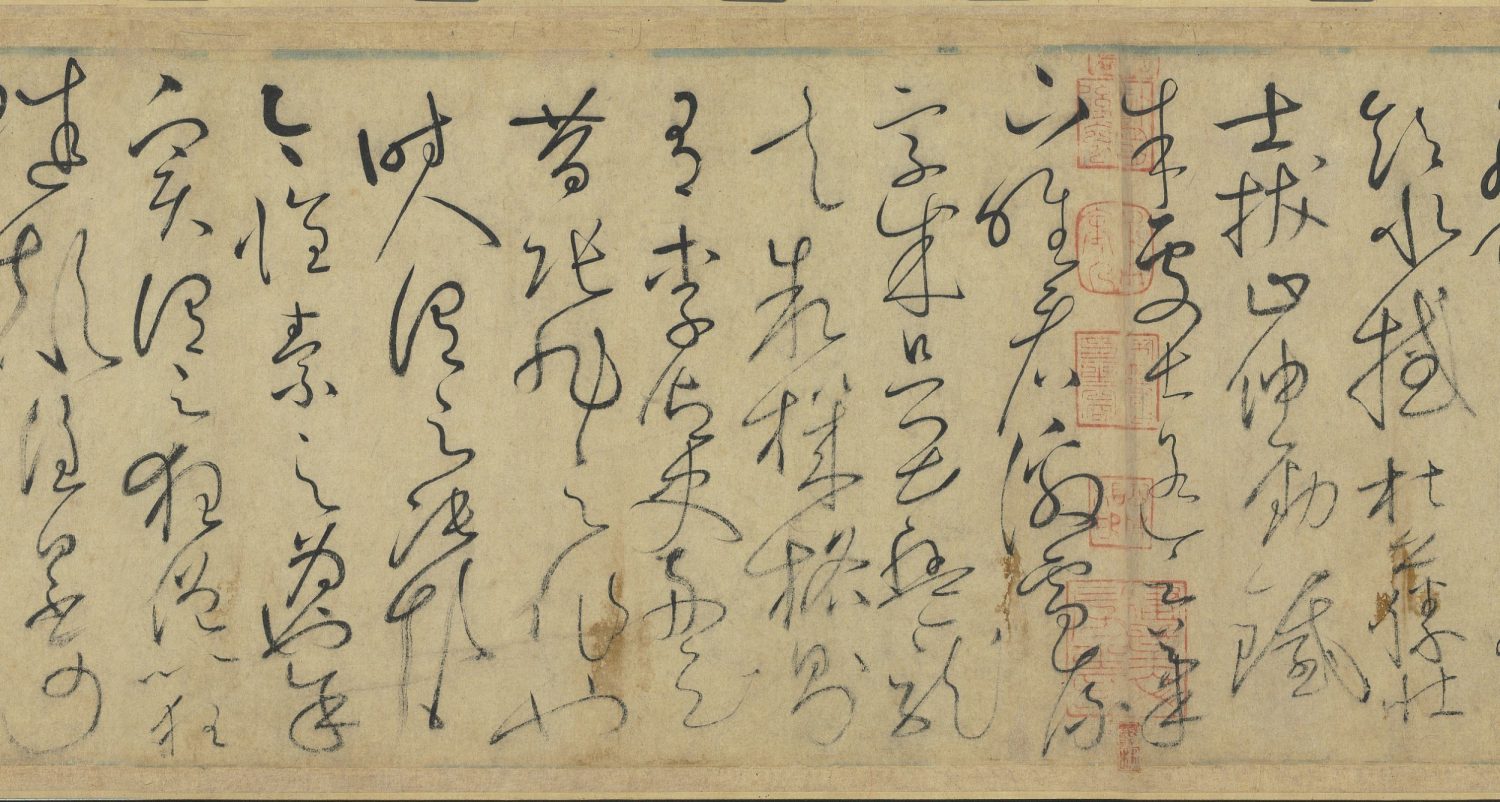 飲水撼枯藤壯
士拔山伸勁鐵
朱處士遙云筆
下唯看激電流
字成只畏盤龍
走敘機格則
有李御史舟云
昔張旭之作也
時人謂之張顛
今懷素之為也余
實謂之狂僧以狂
繼顛誰曰不可